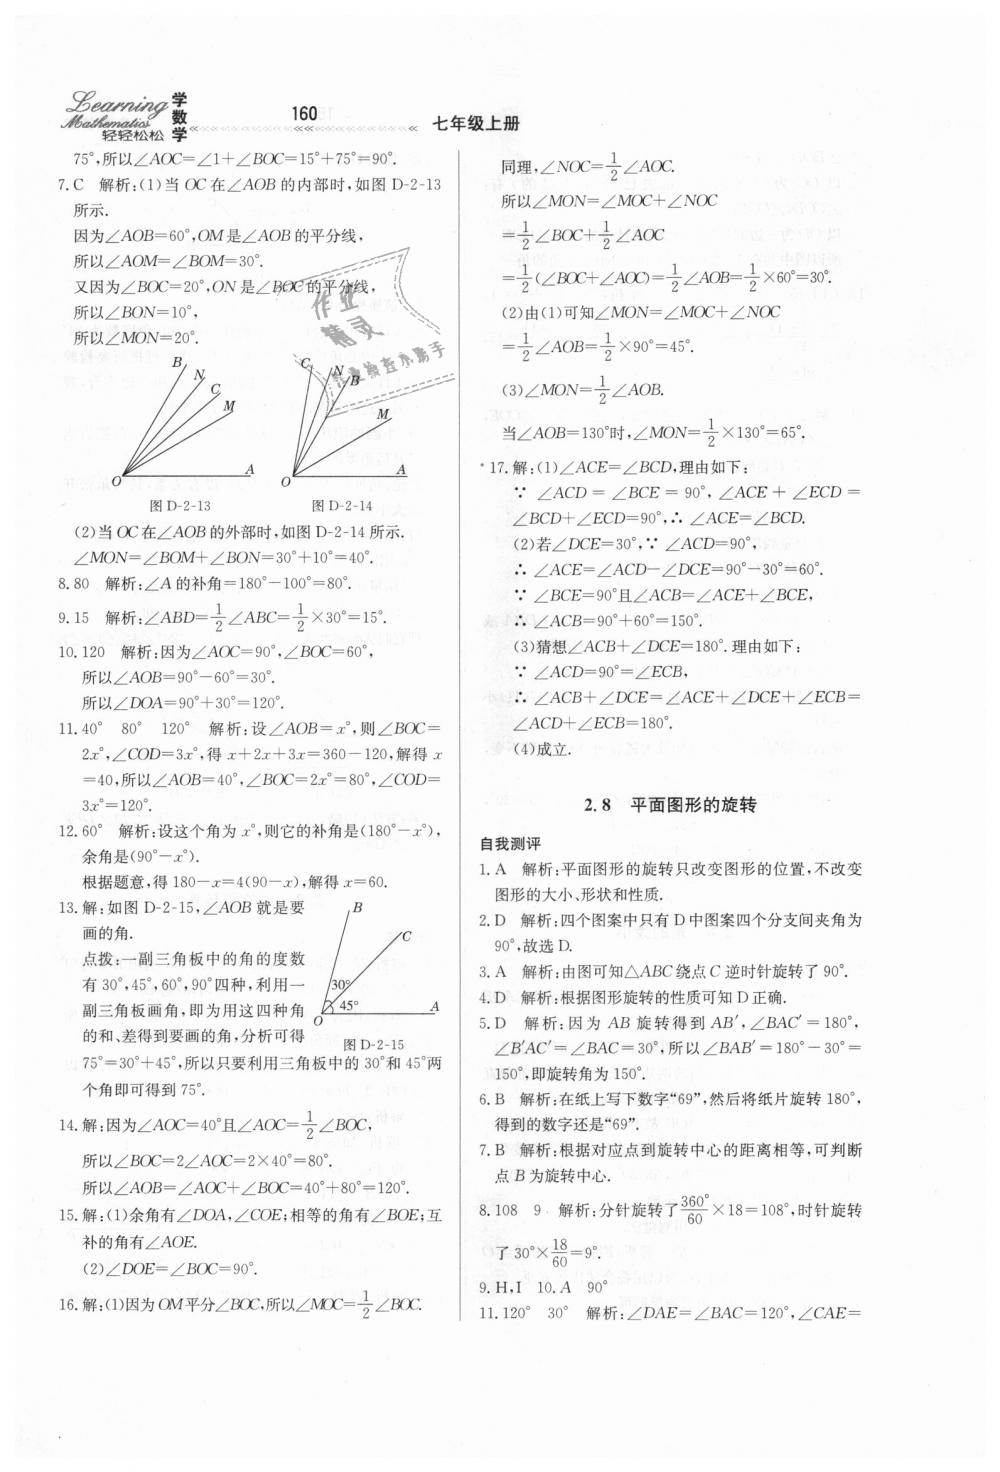 Learning
Mathematics
轻轻松松
学数学
160
七年级上册
75°,所以∠AOC=∠1+∠BOC=15°+75°=90°.
7.C 解析:(1)当 OC在∠AOB的内部时,如图 D-2-13
所示.
因为∠AOB=60°,OM是∠AOB的平分线,
所以∠AOM=∠BOM=30°.
又因为∠BOC=20°,ON是∠BOC的平分线,
所以∠BON=10°,
所以∠MON=20°.
B
N
C
M
O
A
图 D-2-13
C
N
B
M
O
A
图 D-2-14
作业
精灵
作业检查小助手
(2)当OC在∠AOB的外部时,如图 D-2-14 所示.
∠MON=∠BOM+∠BON=30°+10°=40°.
8.80 解析:∠A的补角=180°-100°=80°.
9.15 解析:∠ABD=1/2∠ABC=1/2×30°=15°.
10.120 解析:因为∠AOC=90°,∠BOC=60°,
所以∠AOB=90°-60°=30°.
所以∠DOA=90°+30°=120°.
11.40° 80° 120° 解析:设∠AOB=x°,则∠BOC=
2x°,∠COD=3x°,得 x+2x+3x=360-120,解得 x
=40,所以∠AOB=40°,∠BOC=2x°=80°,∠COD=
3x°=120°.
12.60° 解析:设这个角为 x°,则它的补角是(180°-x°),
余角是(90°-x°).
根据题意,得 180-x=4(90-x),解得 x=60.
13.解:如图 D-2-15,∠AOB就是要
画的角.
点拨:一副三角板中的角的度数
有 30°,45°,60°,90°四种,利用一
副三角板画角,即为用这四种角
的和、差得到要画的角,分析可得
75°=30°+45°,所以只要利用三角板中的 30°和 45°两
个角即可得到 75°.
B
C
30°
45°
O
A
图 D-2-15
14.解:因为∠AOC=40°且∠AOC=1/2∠BOC,
所以∠BOC=2∠AOC=2×40°=80°.
所以∠AOB=∠AOC+∠BOC=40°+80°=120°.
15.解:(1)余角有∠DOA,∠COE;相等的角有∠BOE;互
补的角有∠AOE.
(2)∠DOE=∠BOC=90°.
16.解:(1)因为OM平分∠BOC,所以∠MOC=1/2∠BOC.
同理,∠NOC=1/2∠AOC.
所以∠MON=∠MOC+∠NOC
=1/2∠BOC+1/2∠AOC
=1/2(∠BOC+∠AOC)=1/2∠AOB=1/2×60°=30°.
(2)由(1)可知∠MON=∠MOC+∠NOC
=1/2∠AOB=1/2×90°=45°.
(3)∠MON=1/2∠AOB.
当∠AOB=130°时,∠MON=1/2×130°=65°.
*17.解:(1)∠ACE=∠BCD,理由如下:
∵ ∠ACD=∠BCE=90°,∠ACE+∠ECD=
∠BCD+∠ECD=90°,∴ ∠ACE=∠BCD.
(2)若∠DCE=30°,∵ ∠ACD=90°,
∴ ∠ACE=∠ACD-∠DCE=90°-30°=60°.
∵ ∠BCE=90°且∠ACB=∠ACE+∠BCE,
∴ ∠ACB=90°+60°=150°.
(3)猜想∠ACB+∠DCE=180°.理由如下:
∵ ∠ACD=90°=∠ECB,
∴ ∠ACB+∠DCE=∠ACE+∠DCE+∠ECB=
∠ACD+∠ECB=180°.
(4)成立.
2.8 平面图形的旋转
自我测评
1.A 解析:平面图形的旋转只改变图形的位置,不改变
图形的大小、形状和性质.
2.D 解析:四个图案中只有 D 中图案四个分支间夹角为
90°,故选 D.
3.A 解析:由图可知△ABC绕点 C 逆时针旋转了 90°.
4.D 解析:根据图形旋转的性质可知 D 正确.
5.D 解析:因为 AB 旋转得到 AB′,∠BAC′=180°,
∠B′AC′=∠BAC=30°,所以∠BAB′=180°-30°=
150°,即旋转角为 150°.
6.B 解析:在纸上写下数字“69”,然后将纸片旋转 180°,
得到的数字还是“69”.
7.B 解析:根据对应点到旋转中心的距离相等,可判断
点 B 为旋转中心.
8.108 9 解析:分针旋转了360°/60×18=108°,时针旋转
了 30°×18/60=9°.
9.H,I 10.A 90°
11.120° 30° 解析:∠DAE=∠BAC=120°,∠CAE=